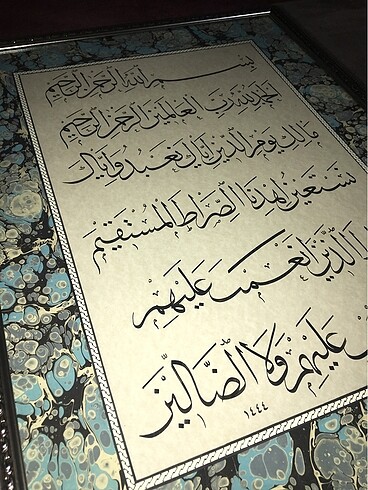 بسم الله الرحمن الرحيم
الحمد لله رب العالمين الرحمن الرحيم
مالك يوم الدين اياك نعبد واياك
نستعين اهدنا الصراط المستقيم
الذين انعمت عليهم
عليهم ولا الضالين
١٤٤٤